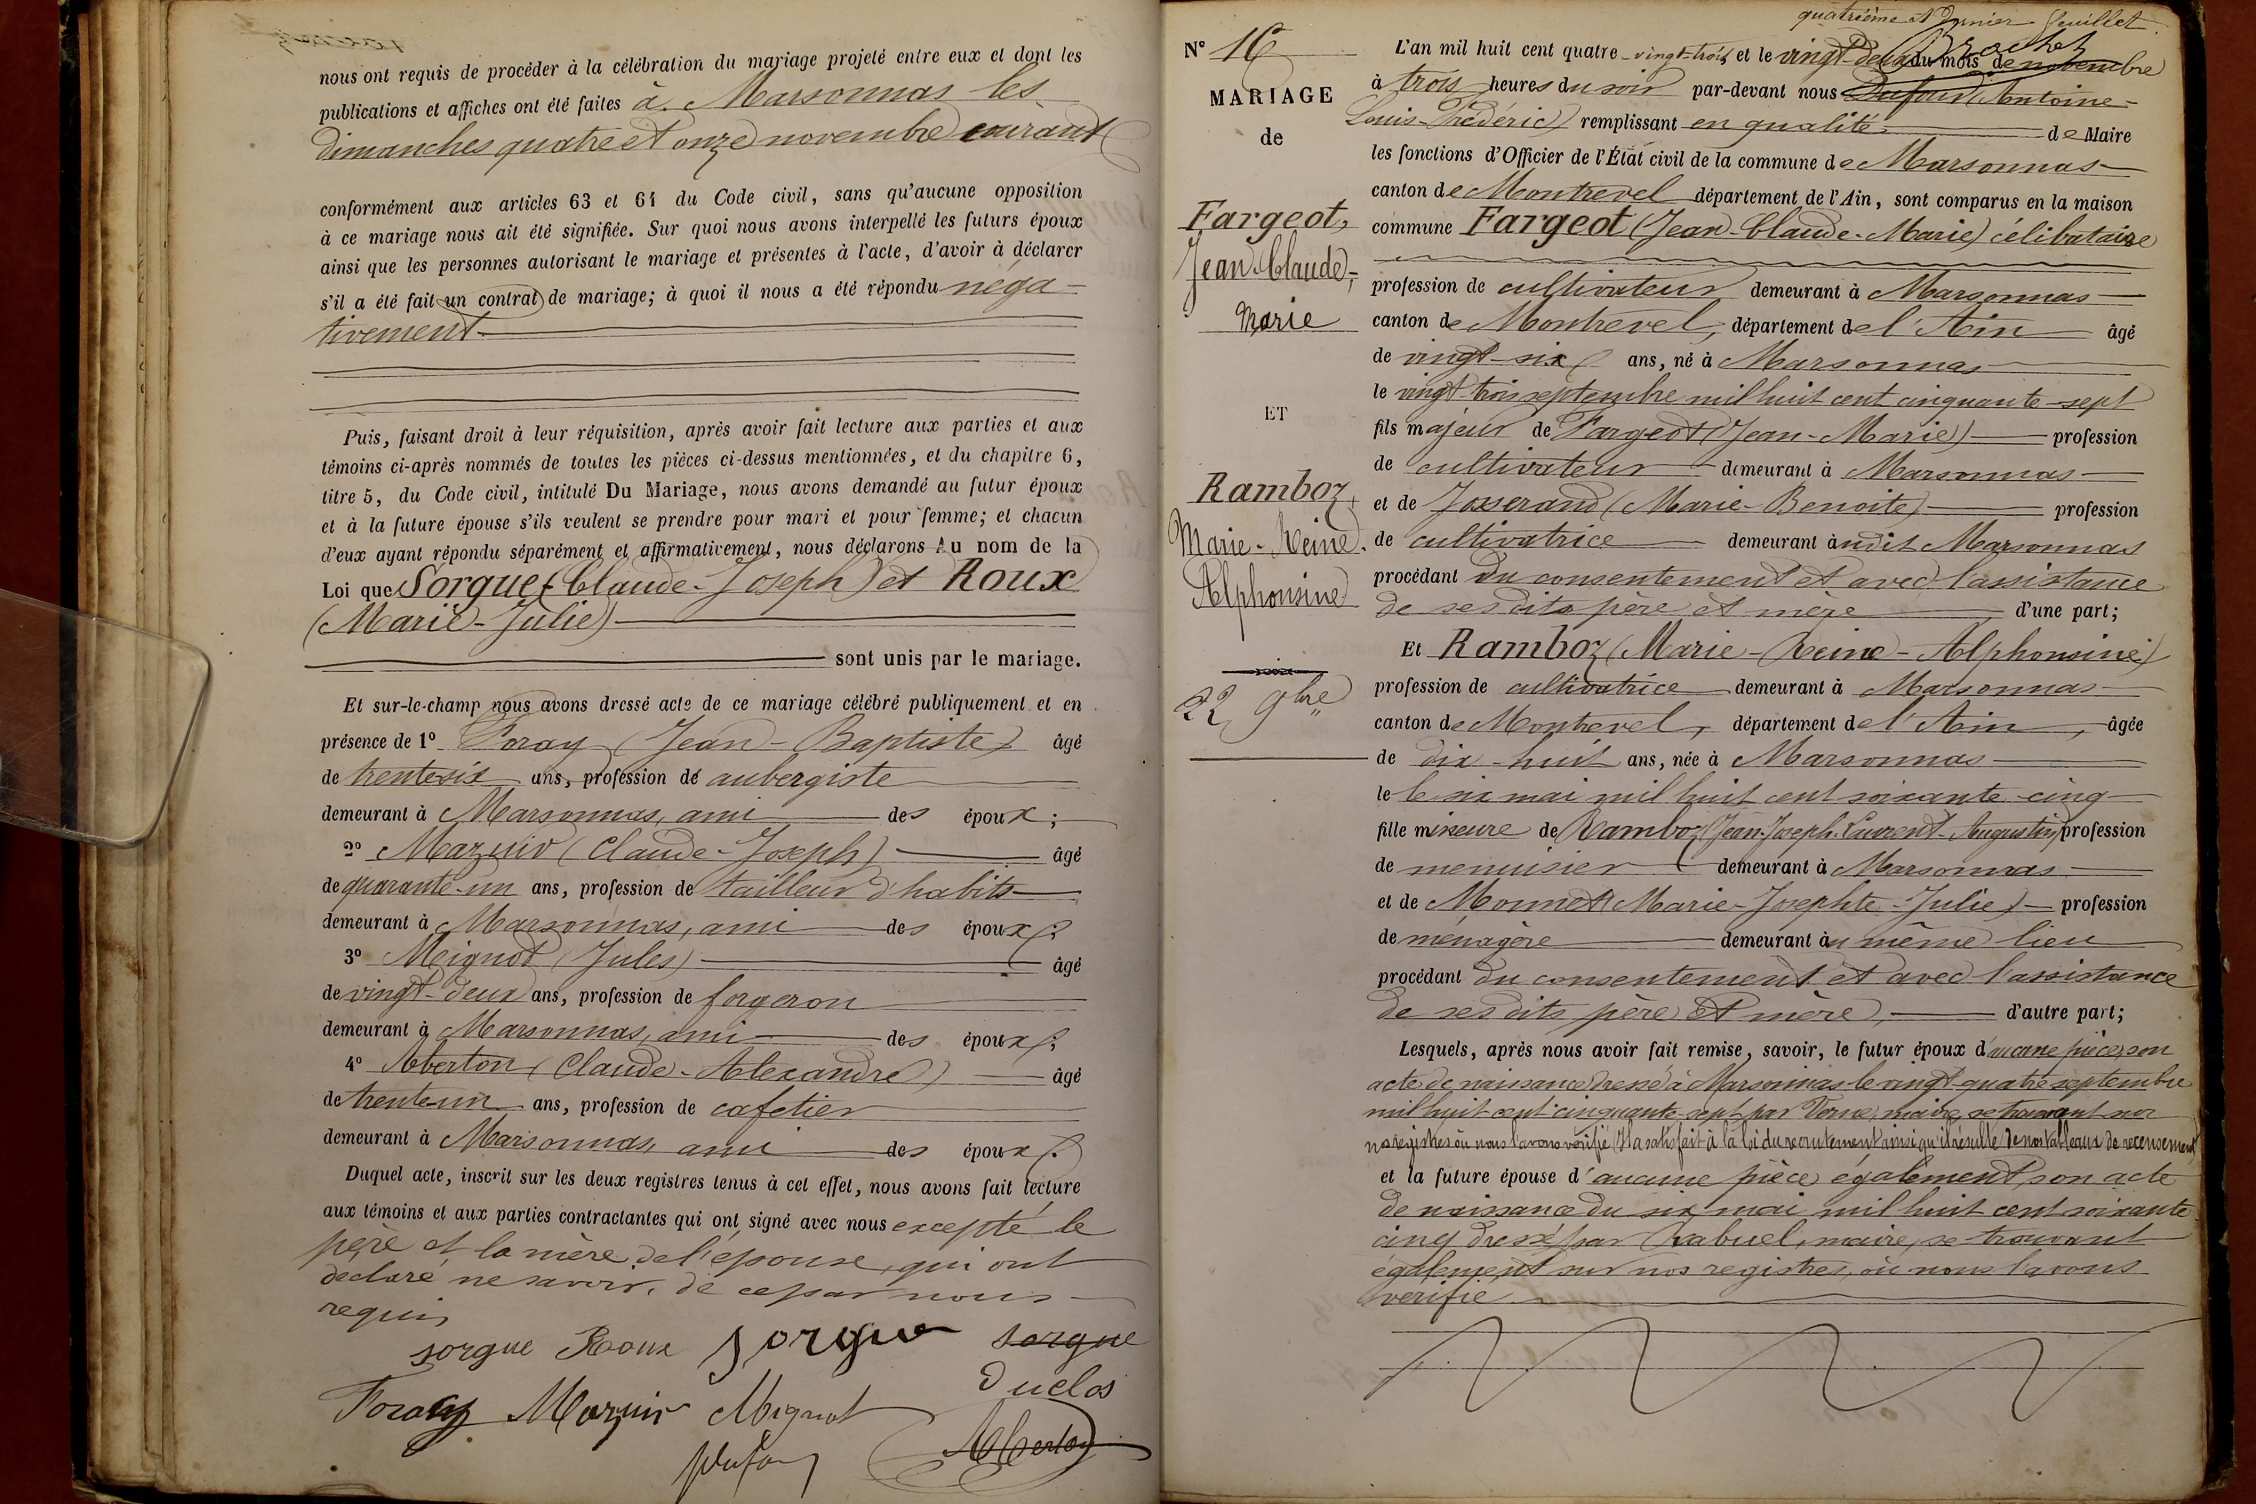 nous ont requis de procéder à la célébration du mariage projeté entre eux et dont les
publications et affiches ont été faites à Marsonnas les
dimanches quatre et onze novembre courant
conformément aux articles 63 et 64 du Code civil, sans qu'aucune opposition
à ce mariage nous ait été signifiée. Sur quoi nous avons interpellé les futurs époux
ainsi que les personnes autorisant le mariage et présentes à l'acte, d'avoir à déclarer
s'il a été fait un contrat de mariage; à quoi il nous a été répondu néga-
tivement
Puis, faisant droit à leur réquisition, après avoir fait lecture aux parties et aux
témoins ci-après nommés de toutes les pièces ci-dessus mentionnées, et du chapitre 6,
titre 5, du Code civil, intitulé Du Mariage, nous avons demandé au futur époux
et à la future épouse s'ils veulent se prendre pour mari et pour femme; et chacun
d'eux ayant répondu séparément et affirmativement, nous déclarons Au nom de la
Loi que Sorgue (Claude-Joseph) et Roux
(Marie-Julie)
sont unis par le mariage.
Et sur-le-champ nous avons dressé acte de ce mariage célébré publiquement et en
présence de 1° Foray (Jean-Baptiste) âgé
de trente six ans, profession de aubergiste
demeurant à Marsonnas, ami des époux;
2° Mazuir (Claude-Joseph) âgé
de quarante-un ans, profession de tailleur d'habits
demeurant à Marsonnas, ami des époux;
3° Mignot (Jules) âgé
de vingt-deux ans, profession de forgeron
demeurant à Marsonnas, ami des époux;
4° Aberton (Claude-Alexandre) âgé
de trente-un ans, profession de cafetier
demeurant à Marsonnas, ami des époux.
Duquel acte, inscrit sur les deux registres tenus à cet effet, nous avons fait lecture
aux témoins et aux parties contractantes qui ont signé avec nous excepté le
père et la mère de l'épouse, qui ont
déclaré ne savoir, de ce par nous
requis
sorgue Roux sorgue sorgue
Foray Mazuir Mignot Duclos
Dufour Aberton
quatrième et dernier feuillet.
Brochet
N° 16
MARIAGE
de
Fargeot,
Jean-Claude-
Marie
ET
Ramboz,
Marie-Reine-
Alphonsine
22 9bre
L'an mil huit cent quatre-vingt-trois et le vingt-deux du mois de novembre
à trois heures du soir par-devant nous Dufour (Antoine-
Louis-Frédéric) remplissant en qualité de Maire
les fonctions d'Officier de l'État civil de la commune de Marsonnas
canton de Montrevel département de l'Ain, sont comparus en la maison
commune Fargeot (Jean-Claude-Marie) célibataire
profession de cultivateur demeurant à Marsonnas
canton de Montrevel, département de l'Ain âgé
de vingt-six ans, né à Marsonnas
le vingt-trois septembre mil huit cent cinquante-sept
fils majeur de Fargeot (Jean-Marie) profession
de cultivateur demeurant à Marsonnas
et de Josserand (Marie-Benoite) profession
de cultivatrice demeurant audit Marsonnas
procédant du consentement et avec l'assistance
de ses dits père et mère d'une part;
Et Ramboz (Marie-Reine-Alphonsine)
profession de cultivatrice demeurant à Marsonnas
canton de Montrevel, département de l'Ain, âgée
de dix-huit ans, née à Marsonnas
le le six mai mil huit cent soixante-cinq
fille mineure de Ramboz (Jean-Joseph-Laurent-Augustin) profession
de menuisier demeurant à Marsonnas
et de Monnet (Marie-Josephte-Julie) profession
de ménagère demeurant au même lieu
procédant du consentement et avec l'assistance
de ses dits père et mère, d'autre part;
Lesquels, après nous avoir fait remise, savoir, le futur époux d'aucune pièce, son
acte de naissance dressé à Marsonnas le vingt-quatre septembre
mil huit cent cinquante-sept par Verne, maire, se trouvant sur
nos registres où nous l'avons vérifié. Il a satisfait à la loi du recrutement ainsi qu'il résulte de nos tableaux de recensement
et la future épouse d'aucune pièce également, son acte
de naissance du six mai mil huit cent soixante-
cinq dressé par Chabuel, maire, se trouvant
également sur nos registres, où nous l'avons
vérifié.